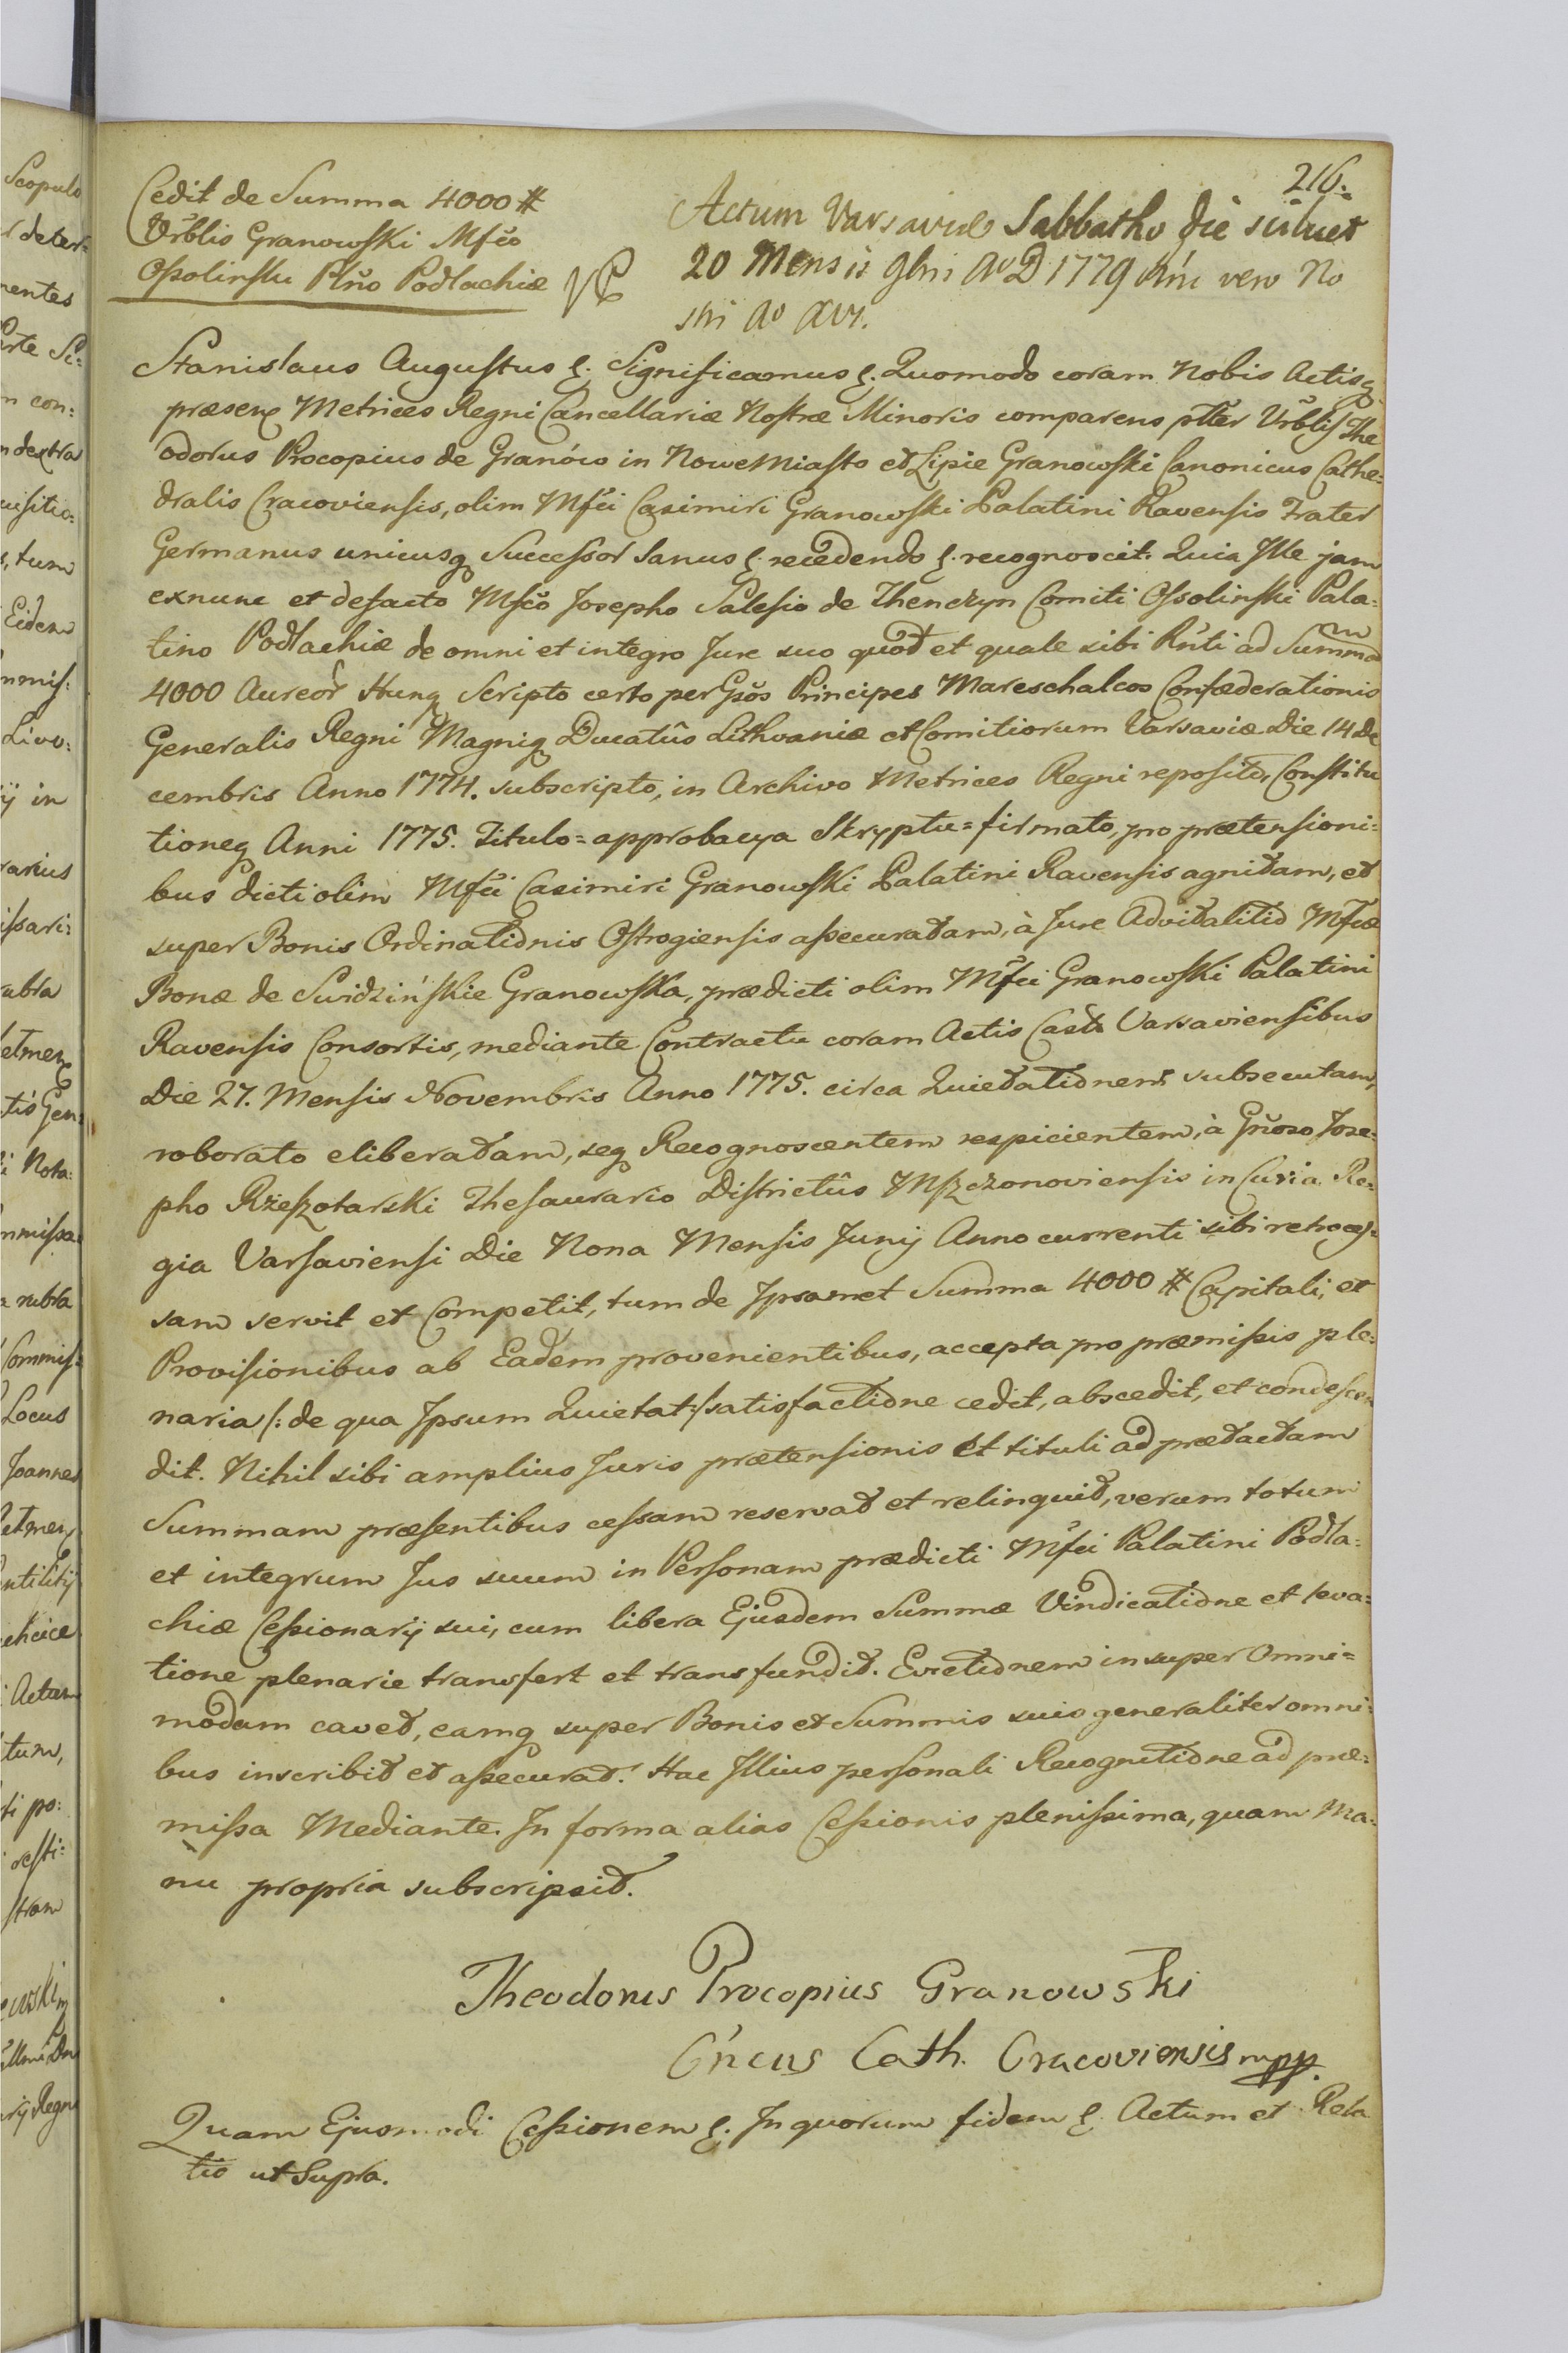 216.
Cedit de Summa 4000 #
Vrblis Granowſki Mfco
Oſsolinſki Plño Podlachiæ
Actum Varsaviæ Sabbatho die scilicet
20 Mensis 9bris Aº D 1779 Rñi vero No
stri Aº XVI.
Stanislaus Auguſtus &. Significamus &. Quomodo coram Nobis Actisq
præsenx Metrices Regni Cancellariæ Noſtræ Minoris comparens pltter Vrblis The
odorus Procopius de Granów in Nowemiaſto et Lipie Granowſki Canonicus Cathe=
dralis Cracovienſis, olim Mfci Casimiri Granowſki Palatini Ravenſis Frater
Germanus unicusq Succeſsor Sanus &. recedendo &. recognoscit. Quia Ille jam
exnunc et defacto Mfco Josepho Saleſio de Thenczyn Comiti Oſsolinſki Pala=
tino Podlachiæ de omni et integro Jure suo quod et quale sibi Rñti ad Summam
4000 Aureor Hunq Scripto certo per Gsos Principes Mareschalcos Confæderationis
Generalis Regni Magniq Ducatûs Lithvaniæ et Comitiorum Varsaviæ Die 14 De
cembris Anno 1774. subscripto, in Archivo Metrices Regni reposito, Conſtitu
tioneq Anni 1775. Titulo=approbacya Skryptu=firmato, pro prætenſioni=
bus dicti olim Mfci Casimiri Granowſki Palatini Ravenſis agnitam, et
super Bonis Ordinationis Oſtrogienſis aſsecuratam, à Jure Advitalitio Mfcæ
Bonæ de Swidzińſkie Granowſka, prædicti olim Mfci Granowſki Palatini
Ravenſis Consortis, mediante Contractu coram Actis Castr Varsavienſibus
Die 27. Menſis Novembris Anno 1775. circa Quietationem subsecutam,
roborato eliberatam, seq Recognoscentem respicientem, à Gñoso Jose=
pho Rzeſzotarſki Theſaurario Diſtrictûs Mſzczonovienſis in Curia Re=
gia Varſavienſi Die Nona Menſis Junij Anno currenti sibi retroceſ=
sam servit et Competit, tum de Ipsamet Summa 4000 # Capitali, et
Proviſionibus ab Eadem provenientibus, accepta pro præmiſsis ple=
naria /: de qua Ipsum Quietat :/ satisfactione cedit, abscedit, et condeſcen
dit. Nihil sibi amplius Juris prætensionis et tituli ad prætactam
Summam præſentibus ceſsam reservat et relinquit, verum totum
et integrum Jus suum in Perſonam prædicti Mfci Palatini Podla=
chiæ Ceſsionarij sui, cum libera Ejusdem Summæ Vindicatione et leva=
tione plenarie transfert et transfundit. Evictionem insuper Omni=
modam cavet, eamq super Bonis et Summis suis generaliter omni=
bus inscribit et aſsecurat. Hac Illius perſonali Recognitione ad præ=
miſsa Mediante. In forma alias Ceſsionis pleniſsima, quam Ma=
nu propria subscripsit.
Theodorus Procopius Granowski
Cñcus Cath. Cracoviensis mpp.
Quam Ejusmodi Ceſsionem &. In quorum fidem &. Actum et Rela
tio ut Supra.